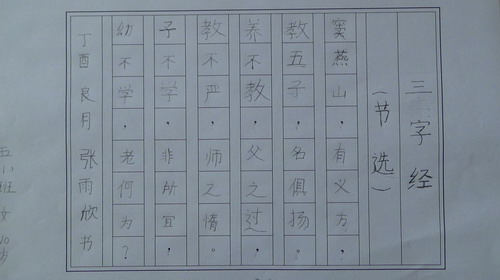 三字经
（节选）
窦燕山，有义方，
教五子，名俱扬。
养不教，父之过，
教不严，师之惰。
子不学，非所宜，
幼不学，老何为？
丁酉良月 张雨欣书
五八班 女 10岁